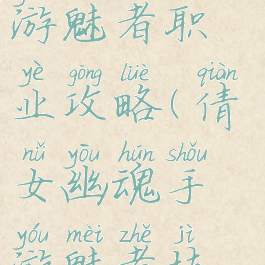 游魅者职
yè gōng lüè qiàn
业攻略(倩
nǚ yōu hún shǒu
女幽魂手
yóu mèi zhě jì
游魅者技